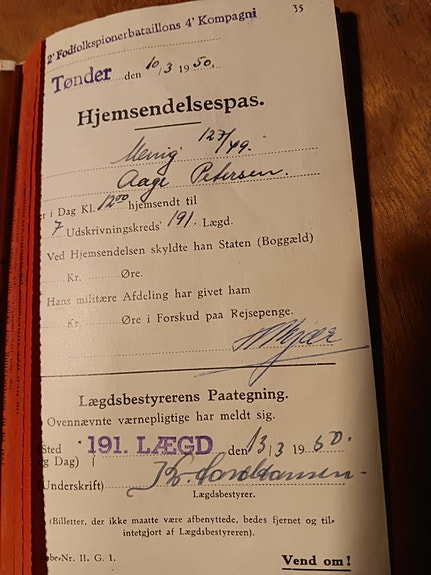 35
2' Fodfolkspionerbataillons 4' Kompagni
Tønder den 10/3 1950.
Hjemsendelsespas.
Menig 127/49.
Aage Petersen.
er i Dag Kl. 1200 hjemsendt til
7 Udskrivningskreds' 191. Lægd.
Ved Hjemsendelsen skyldte han Staten (Boggæld)
Kr. Øre.
Hans militære Afdeling har givet ham
Kr. Øre i Forskud paa Rejsepenge.
Lægdsbestyrerens Paategning.
Ovennævnte værnepligtige har meldt sig.
(Sted 191. LÆGD den 13/3 1960.
og Dag)
(Underskrift)
Lægdsbestyrer.
(Billetter, der ikke maatte være afbenyttede, bedes fjernet og til-
intetgjort af Lægdsbestyreren).
Nr. II. G. 1. Vend om!